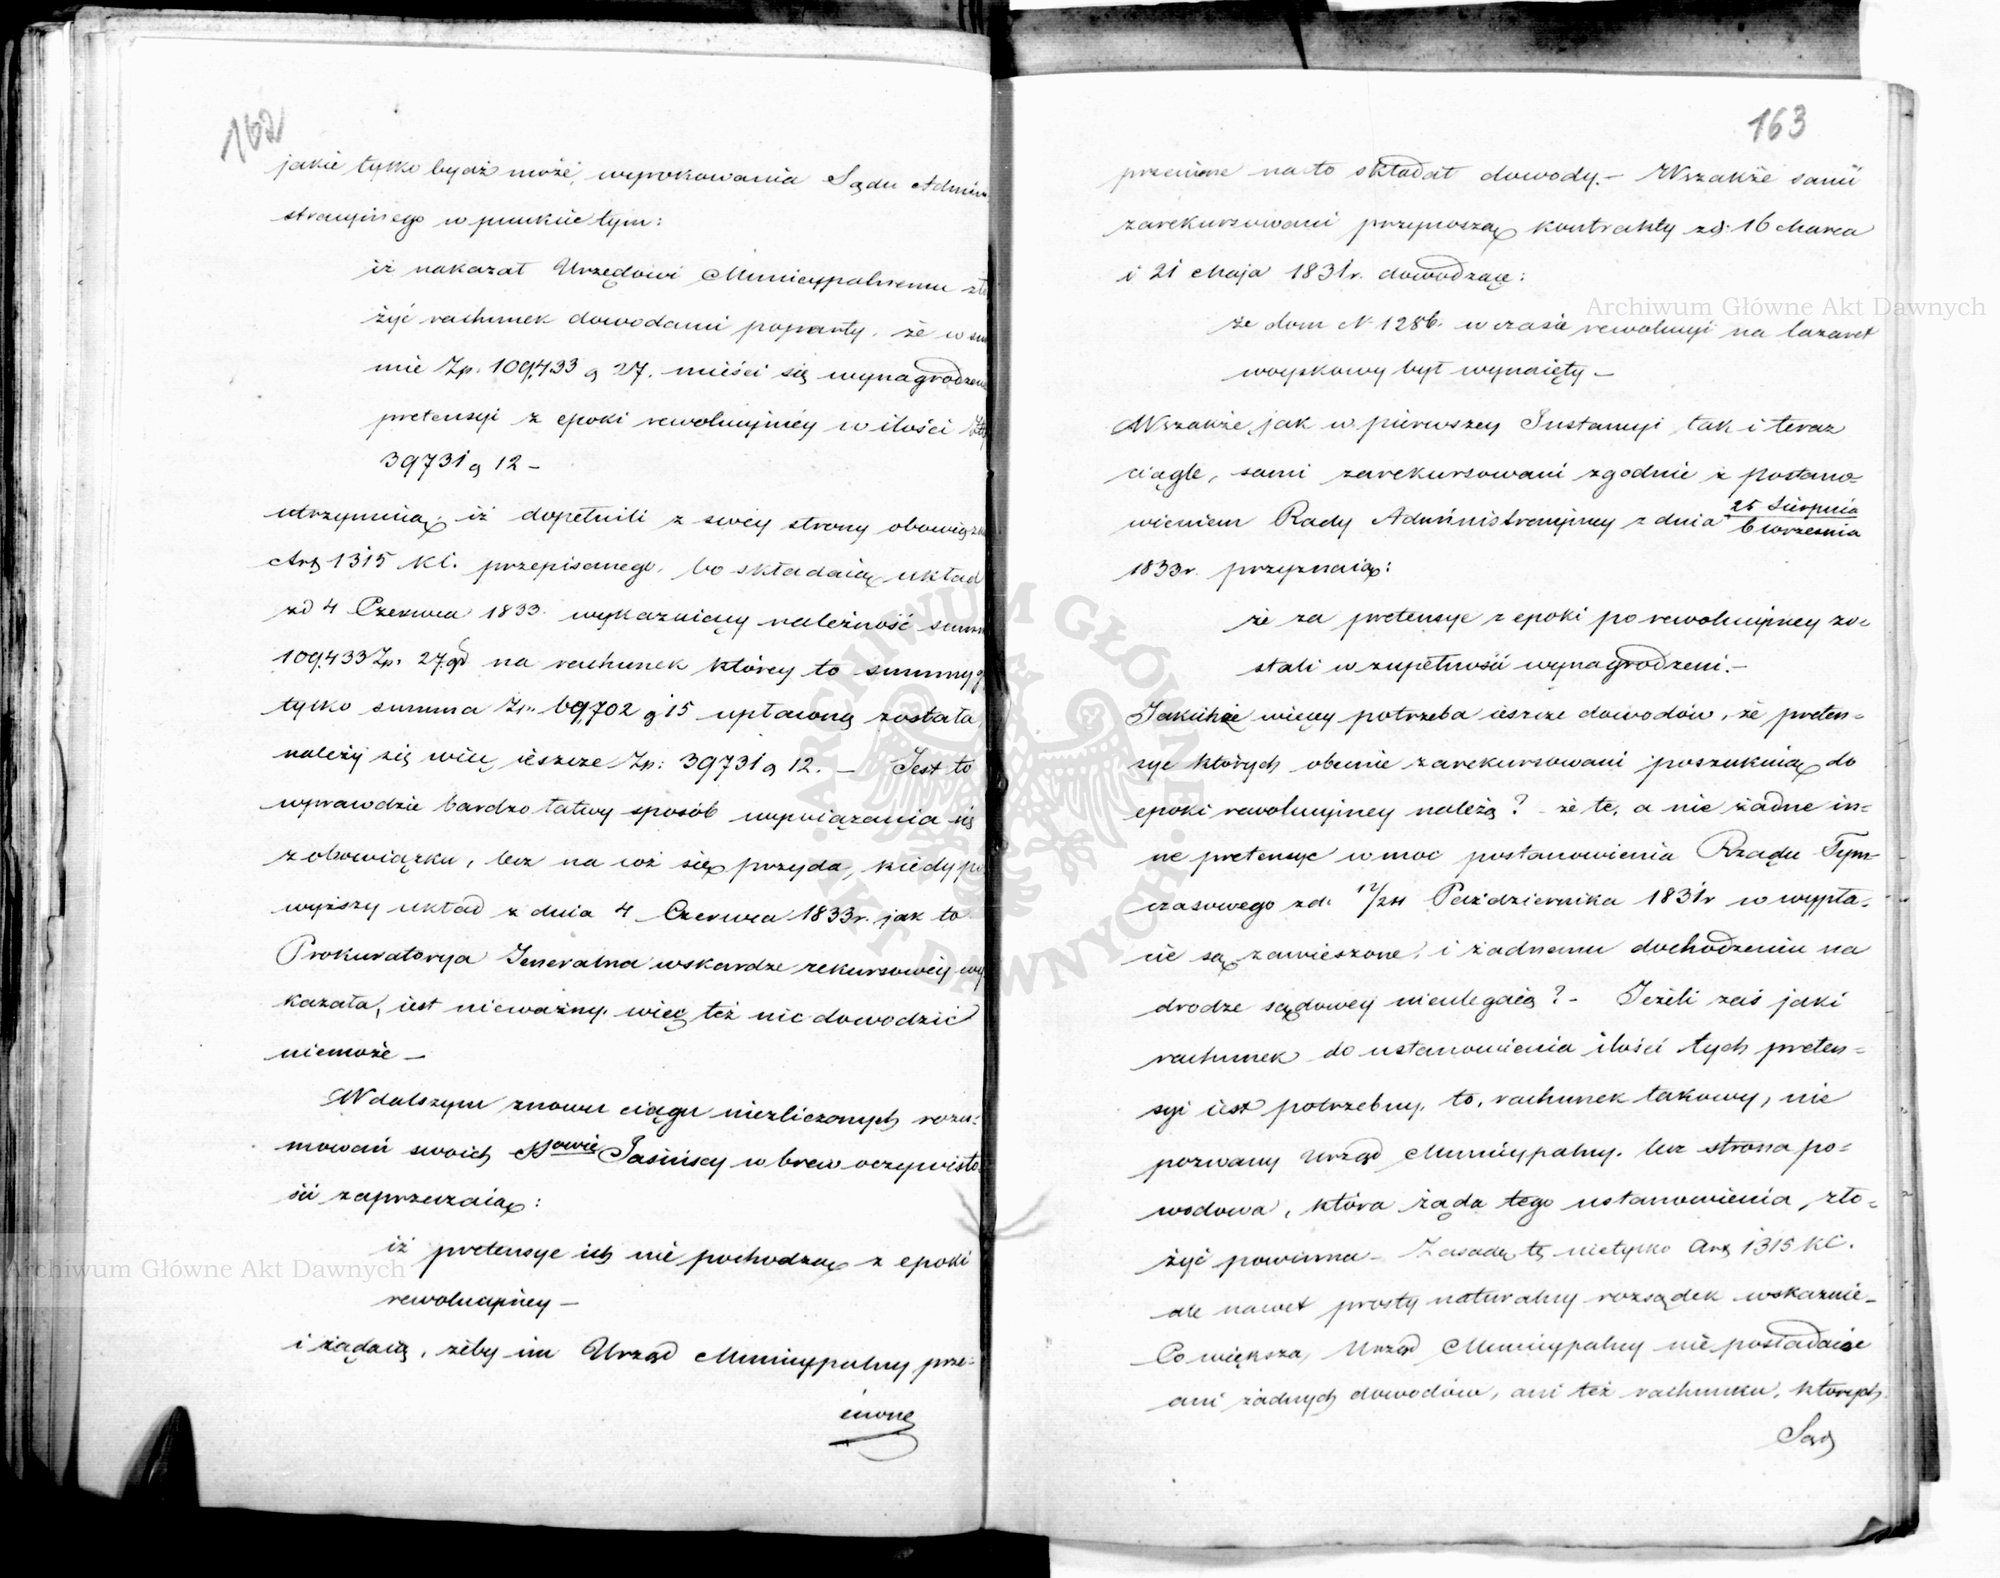 162
jakie tylko bydź może, wyrokowania Sądu Admini
stracyinego w punkcie tym:
iż nakazał Urzędowi Municypalnemu zło
żyć rachunek dowodami poparty, że w sum
mie Zp. 109,433 g 27. mieści się wynagrodzenie
pretensyi z epoki rewolucyinéy w ilości Złp
39731 g 12 –
utrzymuią, iż dopełnili z swéy strony obowiązku
Art 1315 K.C. przepisanego, bo składaią układ
zd 4 Czerwca 1833. wykazuiący należność summy
109,433 Zp. 27 gr na rachunek któréy to summy g
tylko summa Zp. 69,702 g 15 upłaconą została,
należy się więc ieszcze Zp: 39731 g 12. – Jest to
wprawdzie bardzo łatwy sposób wywiązania się
z obowiązku, lecz na cóż się przyda, kiedy po
wyższy układ z dnia 4 Czerwca 1833r. jak to
Prokuratorya Jeneralna w skardze rekursowéy wy
kazała, iest nieważny, więc też nic dowodzić
niemoże –
W dalszym znowu ciągu niezliczonych rozu-
mowań swoich Nowie Jasińscy w brew oczywisto
ści zaprzeczaią:
iż pretensye ich nie pochodzą z epoki
rewolucyinéy –
i żądaią, żeby im Urząd Municypalny prze-
ciwne
163
przeciwne na to składał dowody. – Wszakże samii
zarekursowani przynoszą kontrakty zd: 16 Marca
i 21 Maja 1831r. dowodząc:
że dom N 1286. w czasie rewolucyi na lazaret
woyskowy był wynaięty –
Wszakże jak w pierwszey Instancyi tak i teraz
ciągle, sami zarekursowani zgodnie z postano-
wieniem Rady Administracyiney z dnia 25 Sierpnia
6 Września
1833r. przyznaią:
że za pretensye z epoki porewolucyiney zo-
stali w zupełności wynagrodzeni. –
Jakichże więcey potrzeba ieszcze dowodów, że preten-
sye których obecnie zarekursowani poszukuią do
epoki rewolucyiney należą? – że te, a nie żadne in-
ne pretensye w moc postanowienia Rządu Tym-
czasowego zd. 12/24 Października 1831r w wypła-
cie są zawieszone, i żadnemu dochodzeniu na
drodze sądowey nieulegaią? – Jeżeli zaś jaki
rachunek do ustanowienia ilości tych preten-
syi iest potrzebny, to, rachunek takowy, nie
pozwany Urząd Municypalny, lecz strona po-
wodowa, która żąda tego ustanowienia, zło-
żyć powinna – Zasadę tę nietylko Art 1315 KC.
ale nawet prosty naturalny rozsądek wskazuie –
Co większa, Urząd Municypalny nie posiadaiąc
ani żadnych dowodów, ani też rachunku, których
Sąd
Archiwum Główne Akt Dawnych
Archiwum Główne Akt Dawnych
ARCHIWUM GŁÓWNE AKT DAWNYCH